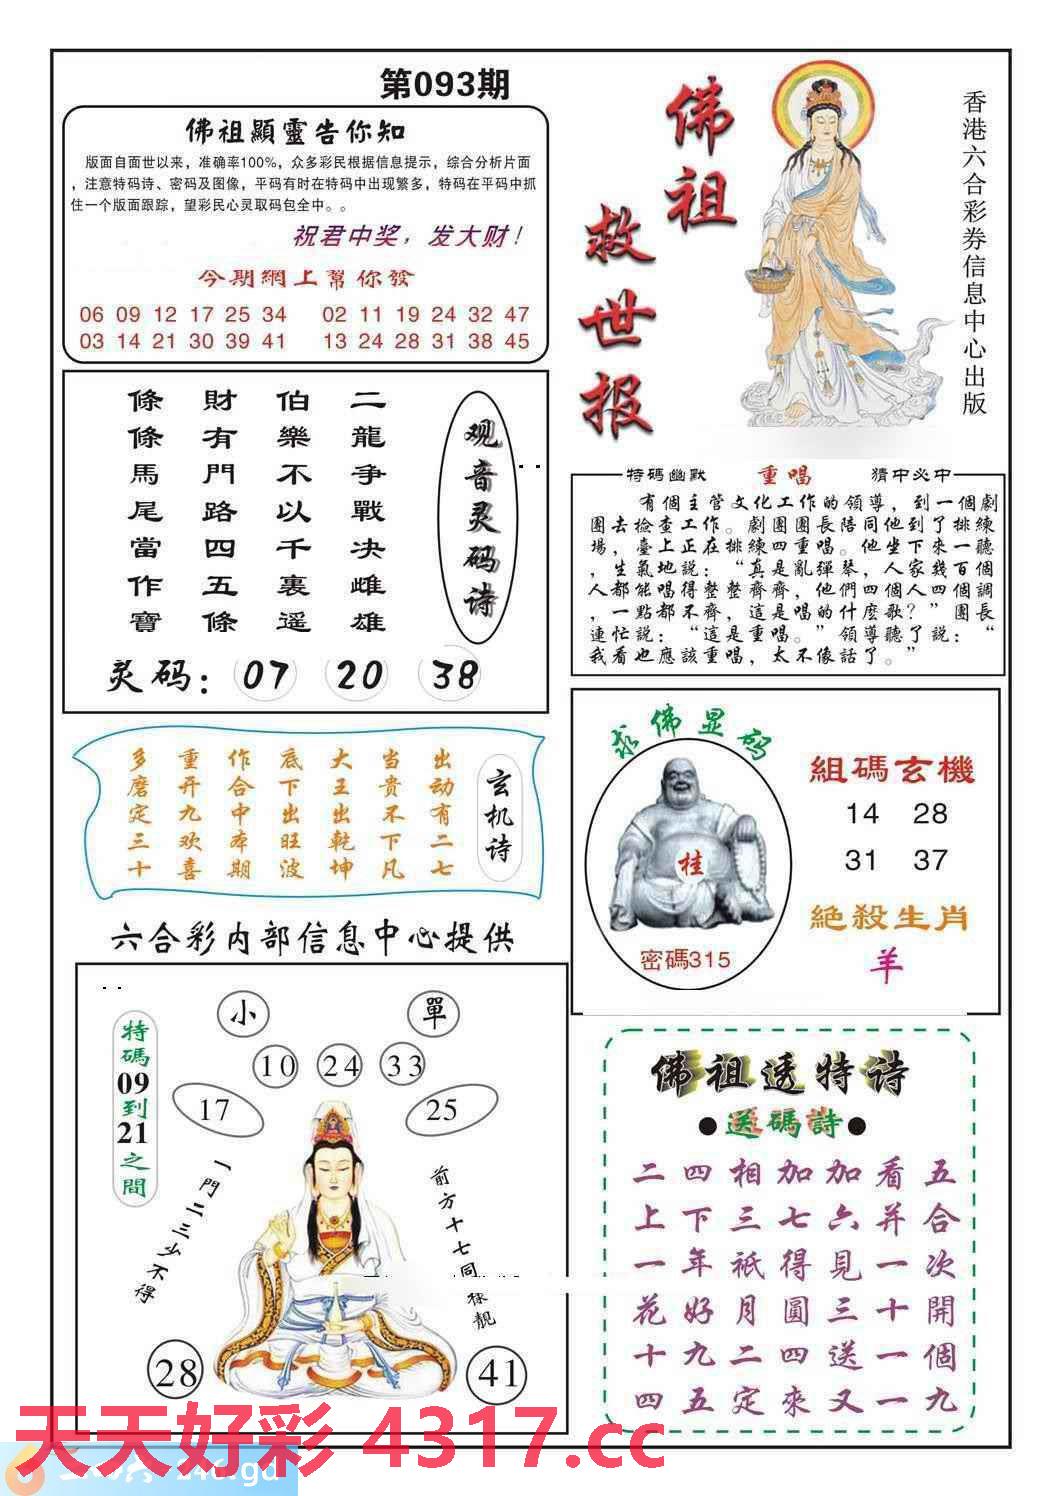 第093期
佛祖顯靈告你知
版面自面世以来，准确率100%，众多彩民根据信息提示，综合分析片面
，注意特码诗、密码及图像，平码有时在特码中出现繁多，特码在平码中抓
住一个版面跟踪，望彩民心灵取码包全中。。
祝君中奖，发大财！
今期網上幫你發
06 09 12 17 25 34 02 11 19 24 32 47
03 14 21 30 39 41 13 24 28 31 38 45
佛祖
救世报
香港六合彩券信息中心出版
观音灵码诗
二龍争戰决雌雄
伯樂不以千裏遥
財有門路四五條
條條馬尾當作寶
灵码：07 20 38
特碼幽默 重唱 猜中必中
有個主管文化工作的領導，到一個劇
團去檢查工作。劇團團長陪同他到了排練
場，臺上正在排練四重唱。他坐下來一聽
，生氣地説：“真是亂彈琴，人家幾百個
人都能唱得整整齊齊，他們四個人四個調
，一點都不齊，這是唱的什麽歌？”團長
連忙説：“這是重唱。”領導聽了説：“
我看也應該重唱，太不像話了。”
玄机诗
出动有二七
当贵不下凡
大王出乾坤
底下出旺波
作合中本期
重开九欢喜
多磨定三十
求佛显码
桂
密碼315
組碼玄機
14 28
31 37
絶殺生肖
羊
六合彩内部信息中心提供
小 單
10 24 33
17 25
特碼09到21之間
一門二三少不得
前方十七同樣靚
28 41
佛祖透特诗
●送碼詩●
五合次開個九
看并一十一一
加六見三送又
加七得圓四來
相三祇月二定
四下年好九五
二上一花十四
天天好彩 4317.cc
246.gd